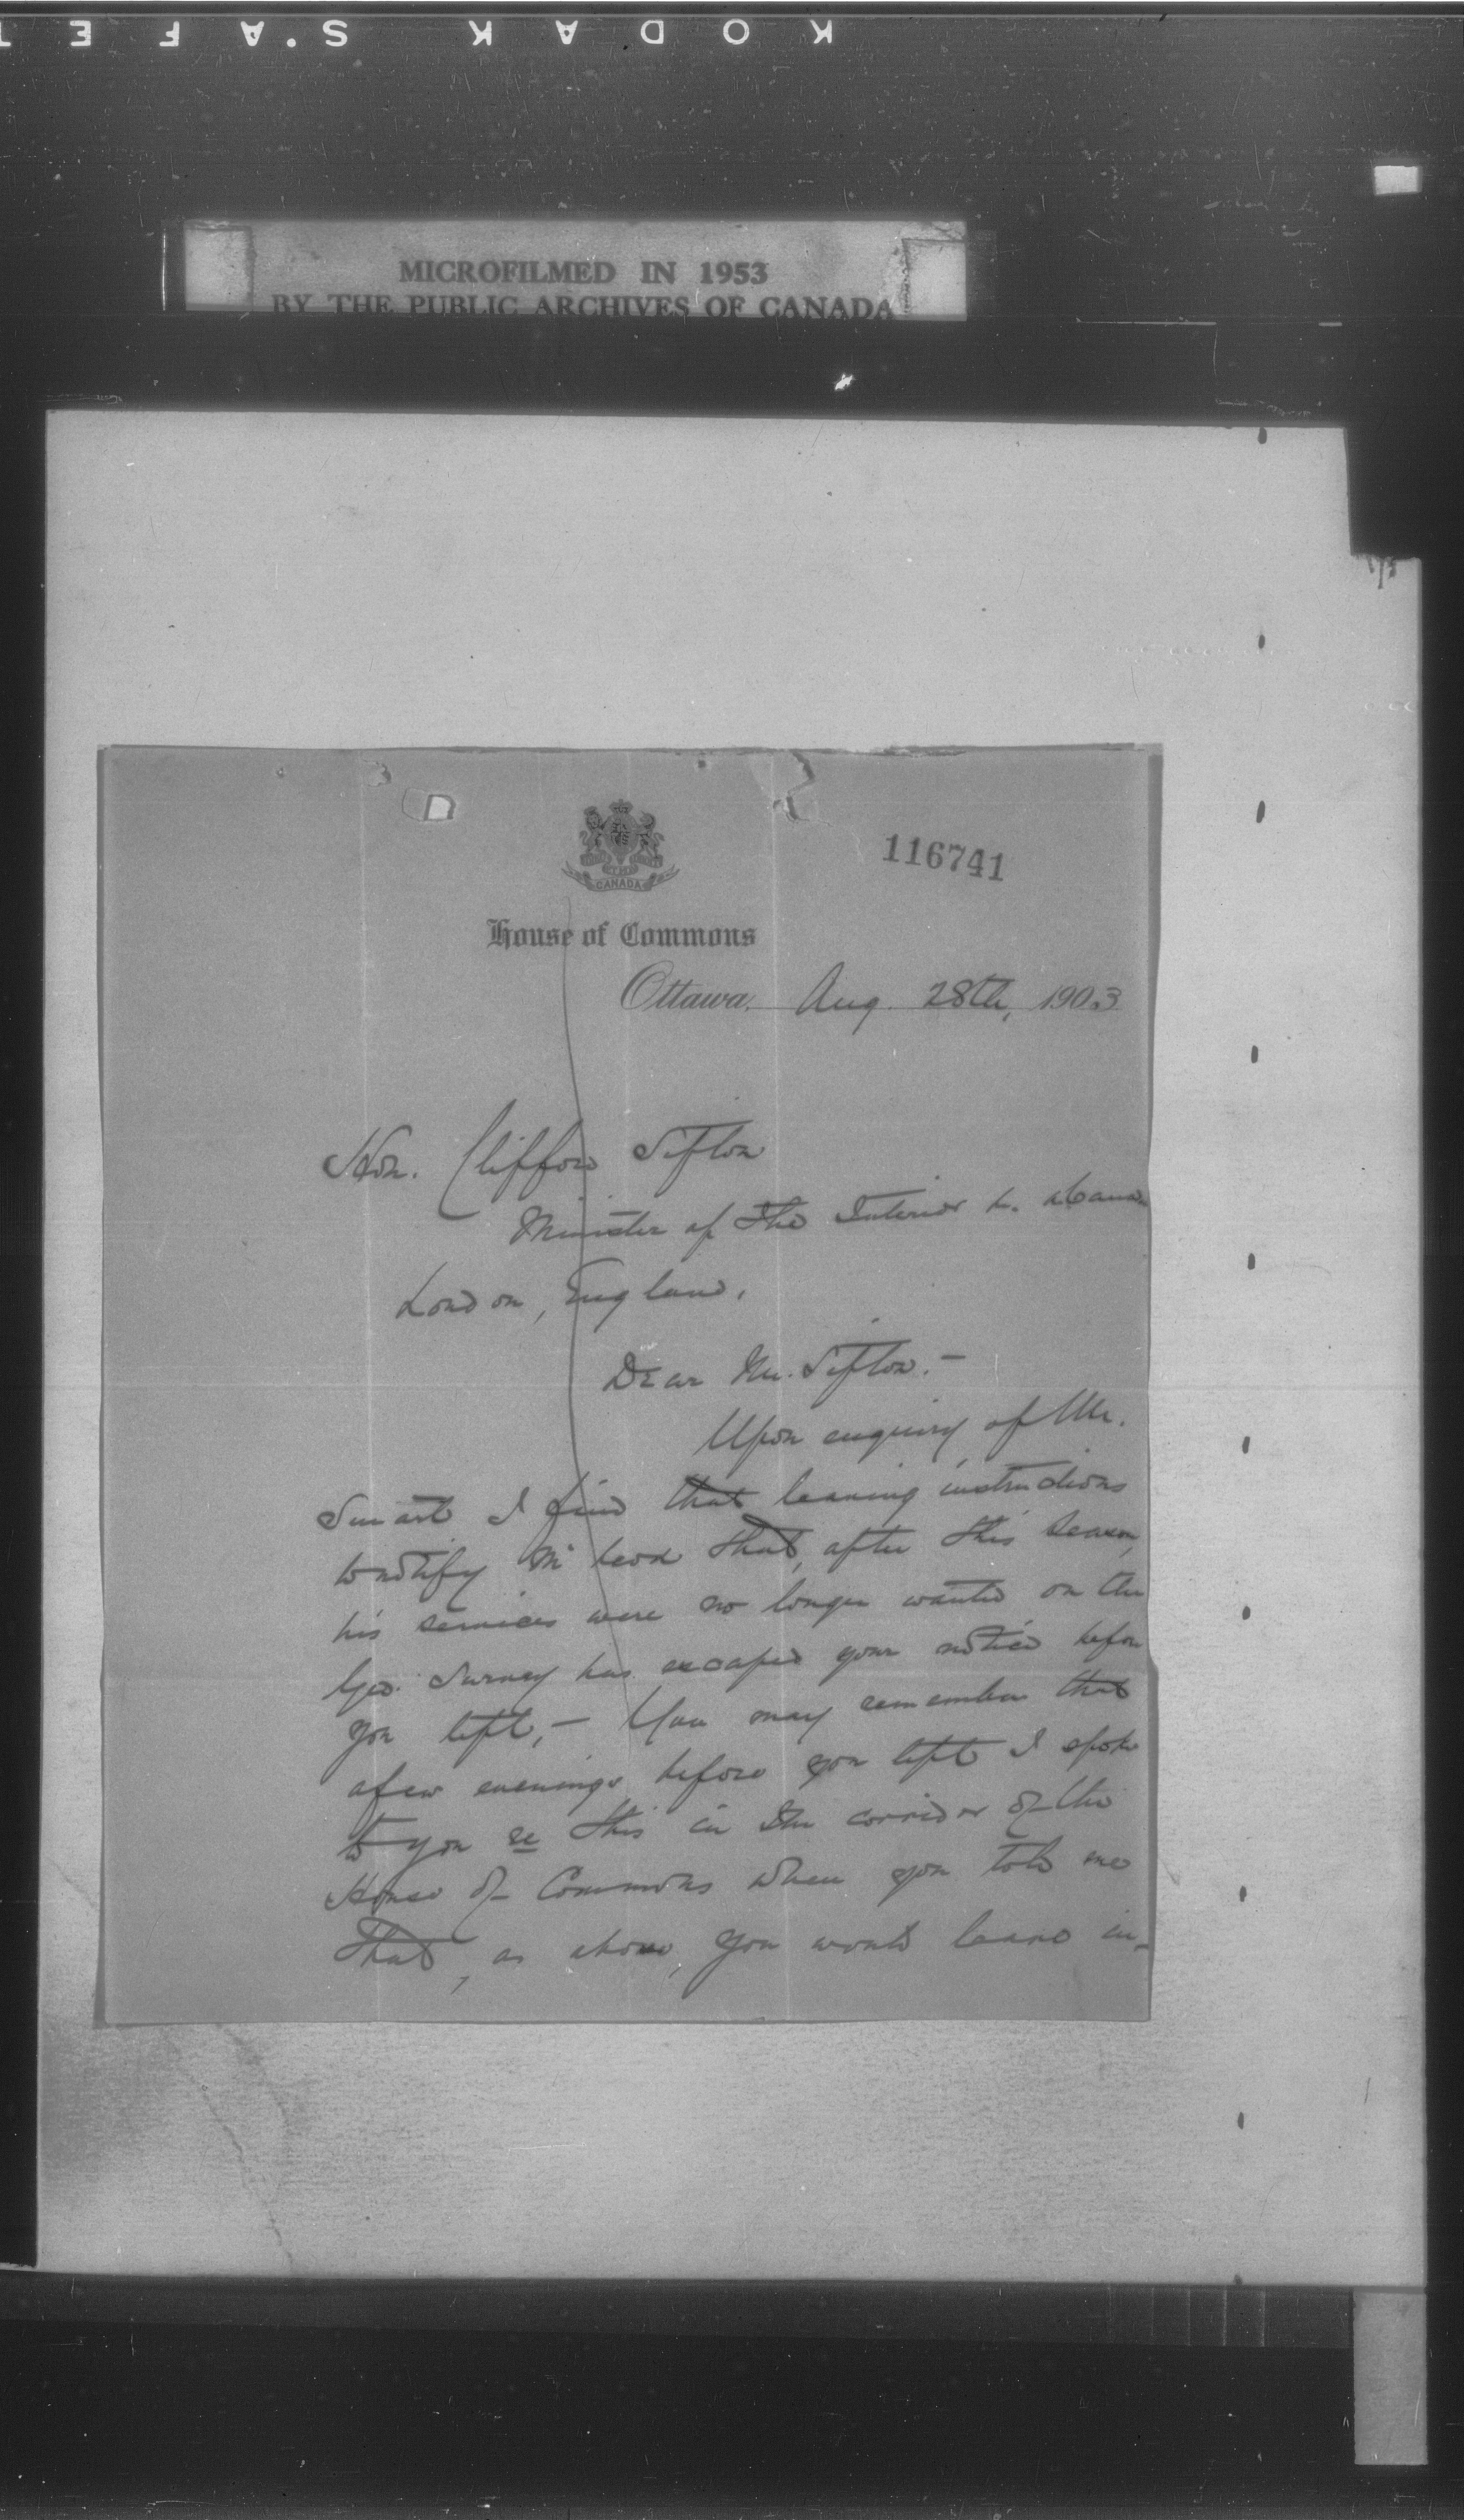 KODAK S'AFE T
MICROFILMED IN 1953
BY THE PUBLIC ARCHIVES OF CANADA
CANADA
116741
House of Commons
Ottawa, Aug. 28th, 1903
Hon. Clifford Sifton
Minister of the Interior
London, England.
Dear Mr. Sifton. —
Upon enquiry of Mr.
Smart I find that leaving instructions
to notify Mr that, after this season,
his services were no longer wanted on the
Geo. Survey has escaped your notice before
you left, — You may remember that
a few evenings before you left I spoke
to you re this in the corridor of the
House of Commons when you told me
that, as above, you would leave in-